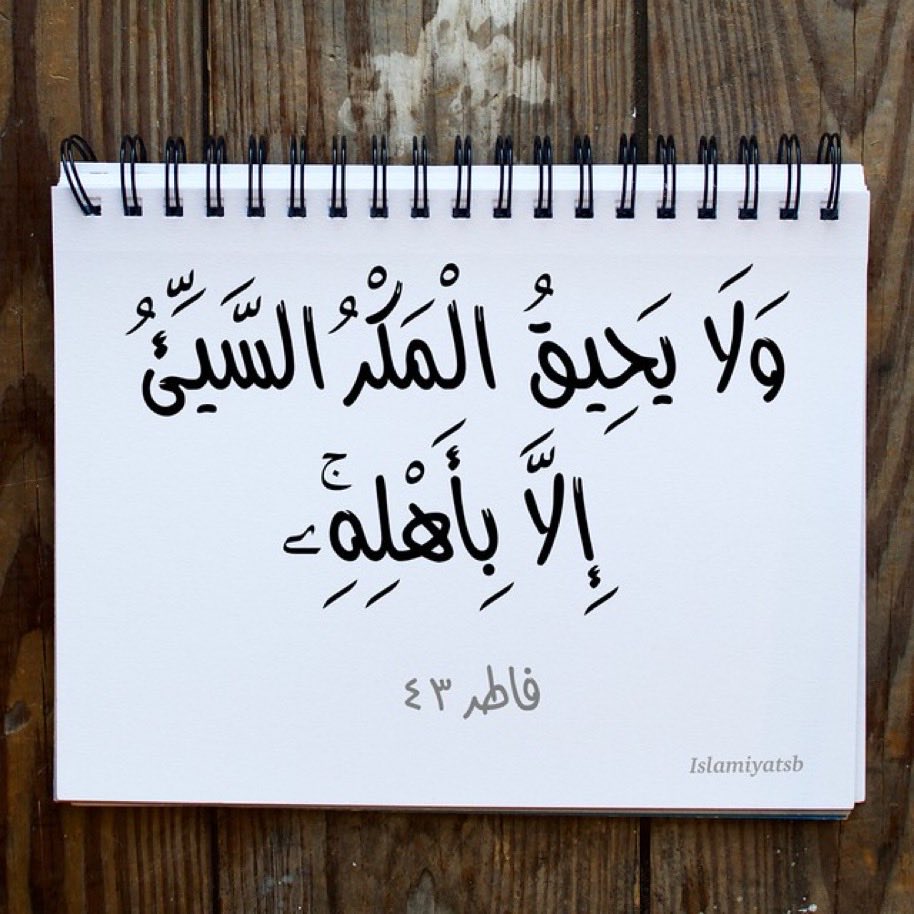 وَلَا يَحِيقُ الْمَكْرُ السَّيِّئُ
إِلَّا بِأَهْلِهِۦ ۚ
فاطر ٤٣
Islamiyatsb